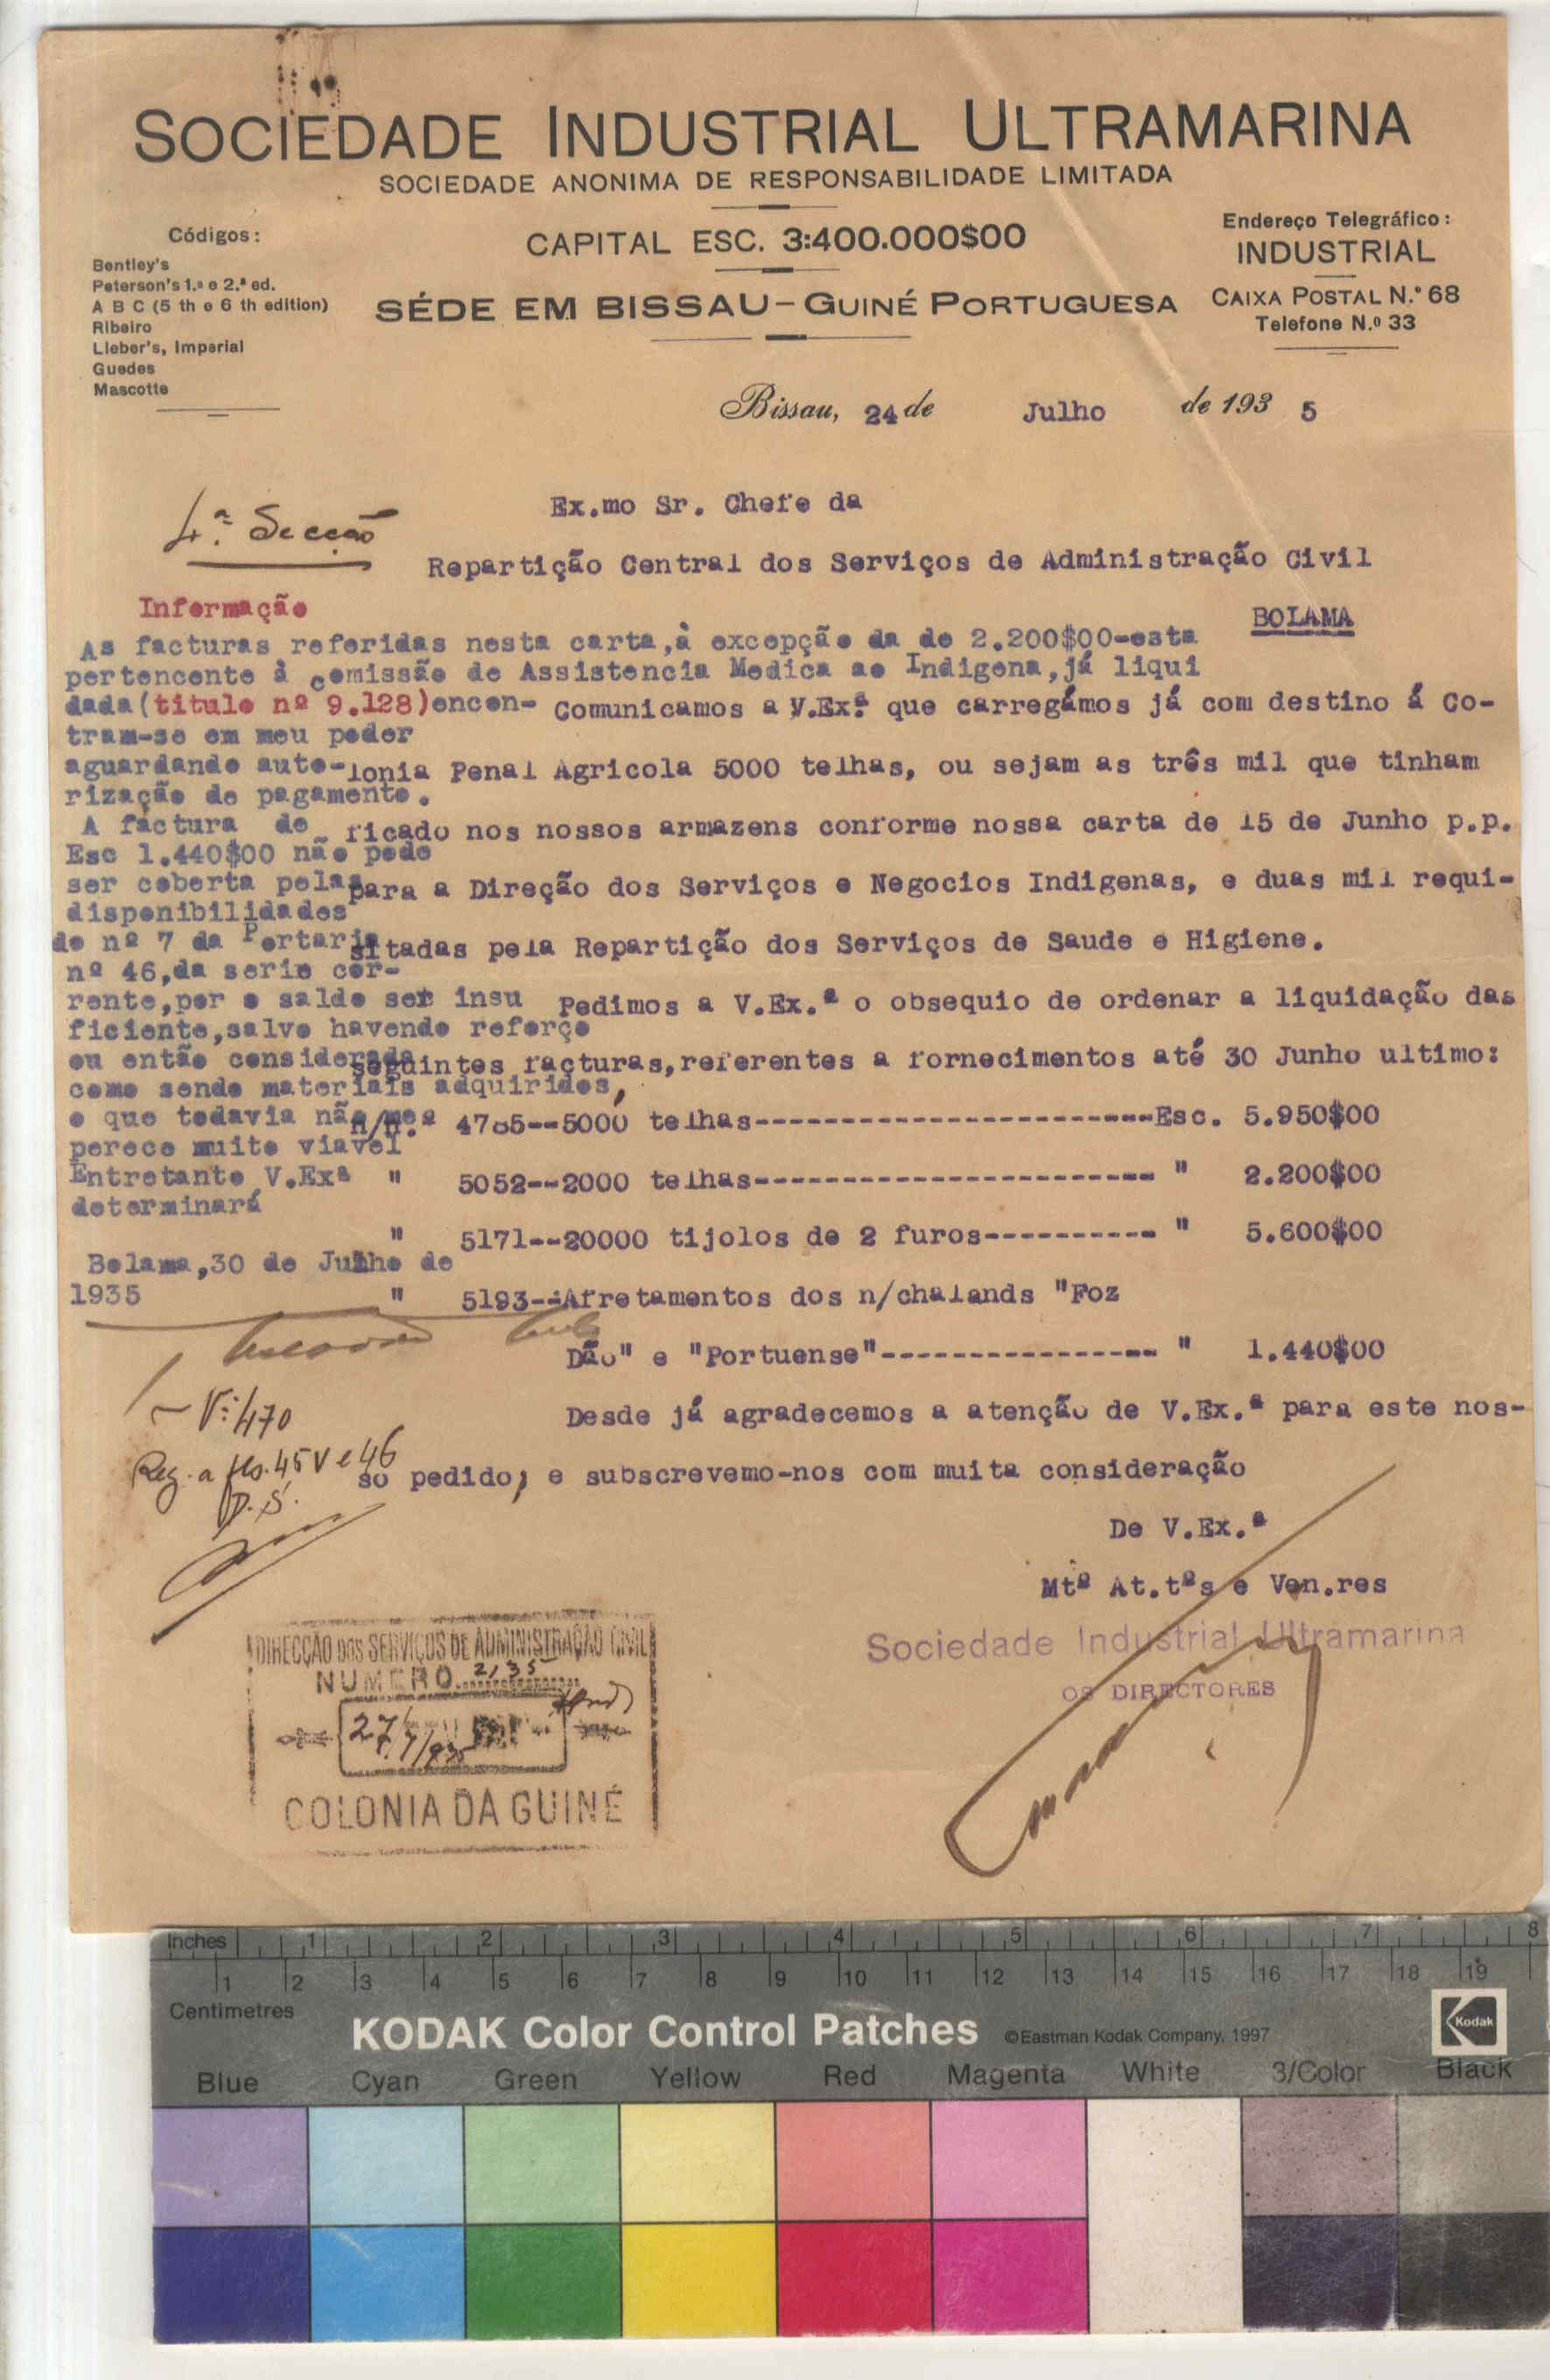 SOCIEDADE INDUSTRIAL ULTRAMARINA
SOCIEDADE ANONIMA DE RESPONSABILIDADE LIMITADA
CAPITAL ESC. 3:400.000$00
SÉDE EM BISSAU-GUINÉ PORTUGUESA
Códigos:
Bentley's
Peterson's 1.ª e 2.ª ed.
A B C (5 th e 6 th edition)
Ribeiro
Lieber's, Imperial
Guedes
Mascotte
Endereço Telegráfico:
INDUSTRIAL
CAIXA POSTAL N.º 68
Telefone N.º 33
Bissau, 24 de Julho de 1935
4.ª Secção
Ex.mo Sr. Chefe da
Repartição Central dos Serviços de Administração Civil
BOLAMA
Informação
As facturas referidas nesta carta,à excepção da de 2.200$00-esta
pertencente à comissão de Assistencia Medica ao Indigena,já liqui
dada(titulo nº 9.128)encon-
tram-se em meu poder
aguardando auto-
rização de pagamento.
A factura de
Esc 1.440$00 não pode
ser coberta pelas
disponibilidades
do nº 7 da Portaria
nº 46,da serie cor-
rente,por o saldo ser insu
ficiente,salvo havendo reforço
ou então considerada
como sendo materiais adquiridos,
o que todavia não me
perece muito viavel
Entretanto V.Exª
determinará
Bolama,30 de Julho de
1935
Comunicamos a V.Exª que carregámos já com destino á Co-
lonia Penal Agricola 5000 telhas, ou sejam as três mil que tinham
ficado nos nossos armazens conforme nossa carta de 15 de Junho p.p.
para a Direção dos Serviços e Negocios Indigenas, e duas mil requi-
sitadas pela Repartição dos Serviços de Saude e Higiene.
Pedimos a V.Ex.ª o obsequio de ordenar a liquidação das
seguintes facturas,referentes a fornecimentos até 30 Junho ultimo:
n/n.º 4765--5000 telhas-----------------------Esc. 5.950$00
" 5052--2000 telhas----------------------- " 2.200$00
" 5171--20000 tijolos de 2 furos---------- " 5.600$00
" 5193--Afretamentos dos n/chalands "Foz
Dão" e "Portuense"---------------- " 1.440$00
Desde já agradecemos a atenção de V.Ex.ª para este nos-
so pedido, e subscrevemo-nos com muita consideração
De V.Ex.ª
Mtº At.tºs e Ven.res
Sociedade Industrial Ultramarina
OS DIRECTORES
Vº 470
Reg. a fls. 45 V e 46
D. S.
DIRECÇÃO DOS SERVIÇOS DE ADMINISTRAÇÃO CIVIL
NUMERO 2135
27/7/935
COLONIA DA GUINÉ
Inches 1 2 3 4 5 6 7 8
1 2 3 4 5 6 7 8 9 10 11 12 13 14 15 16 17 18 19
Centimetres
KODAK Color Control Patches ©Eastman Kodak Company, 1997 Kodak
Blue Cyan Green Yellow Red Magenta White 3/Color Black